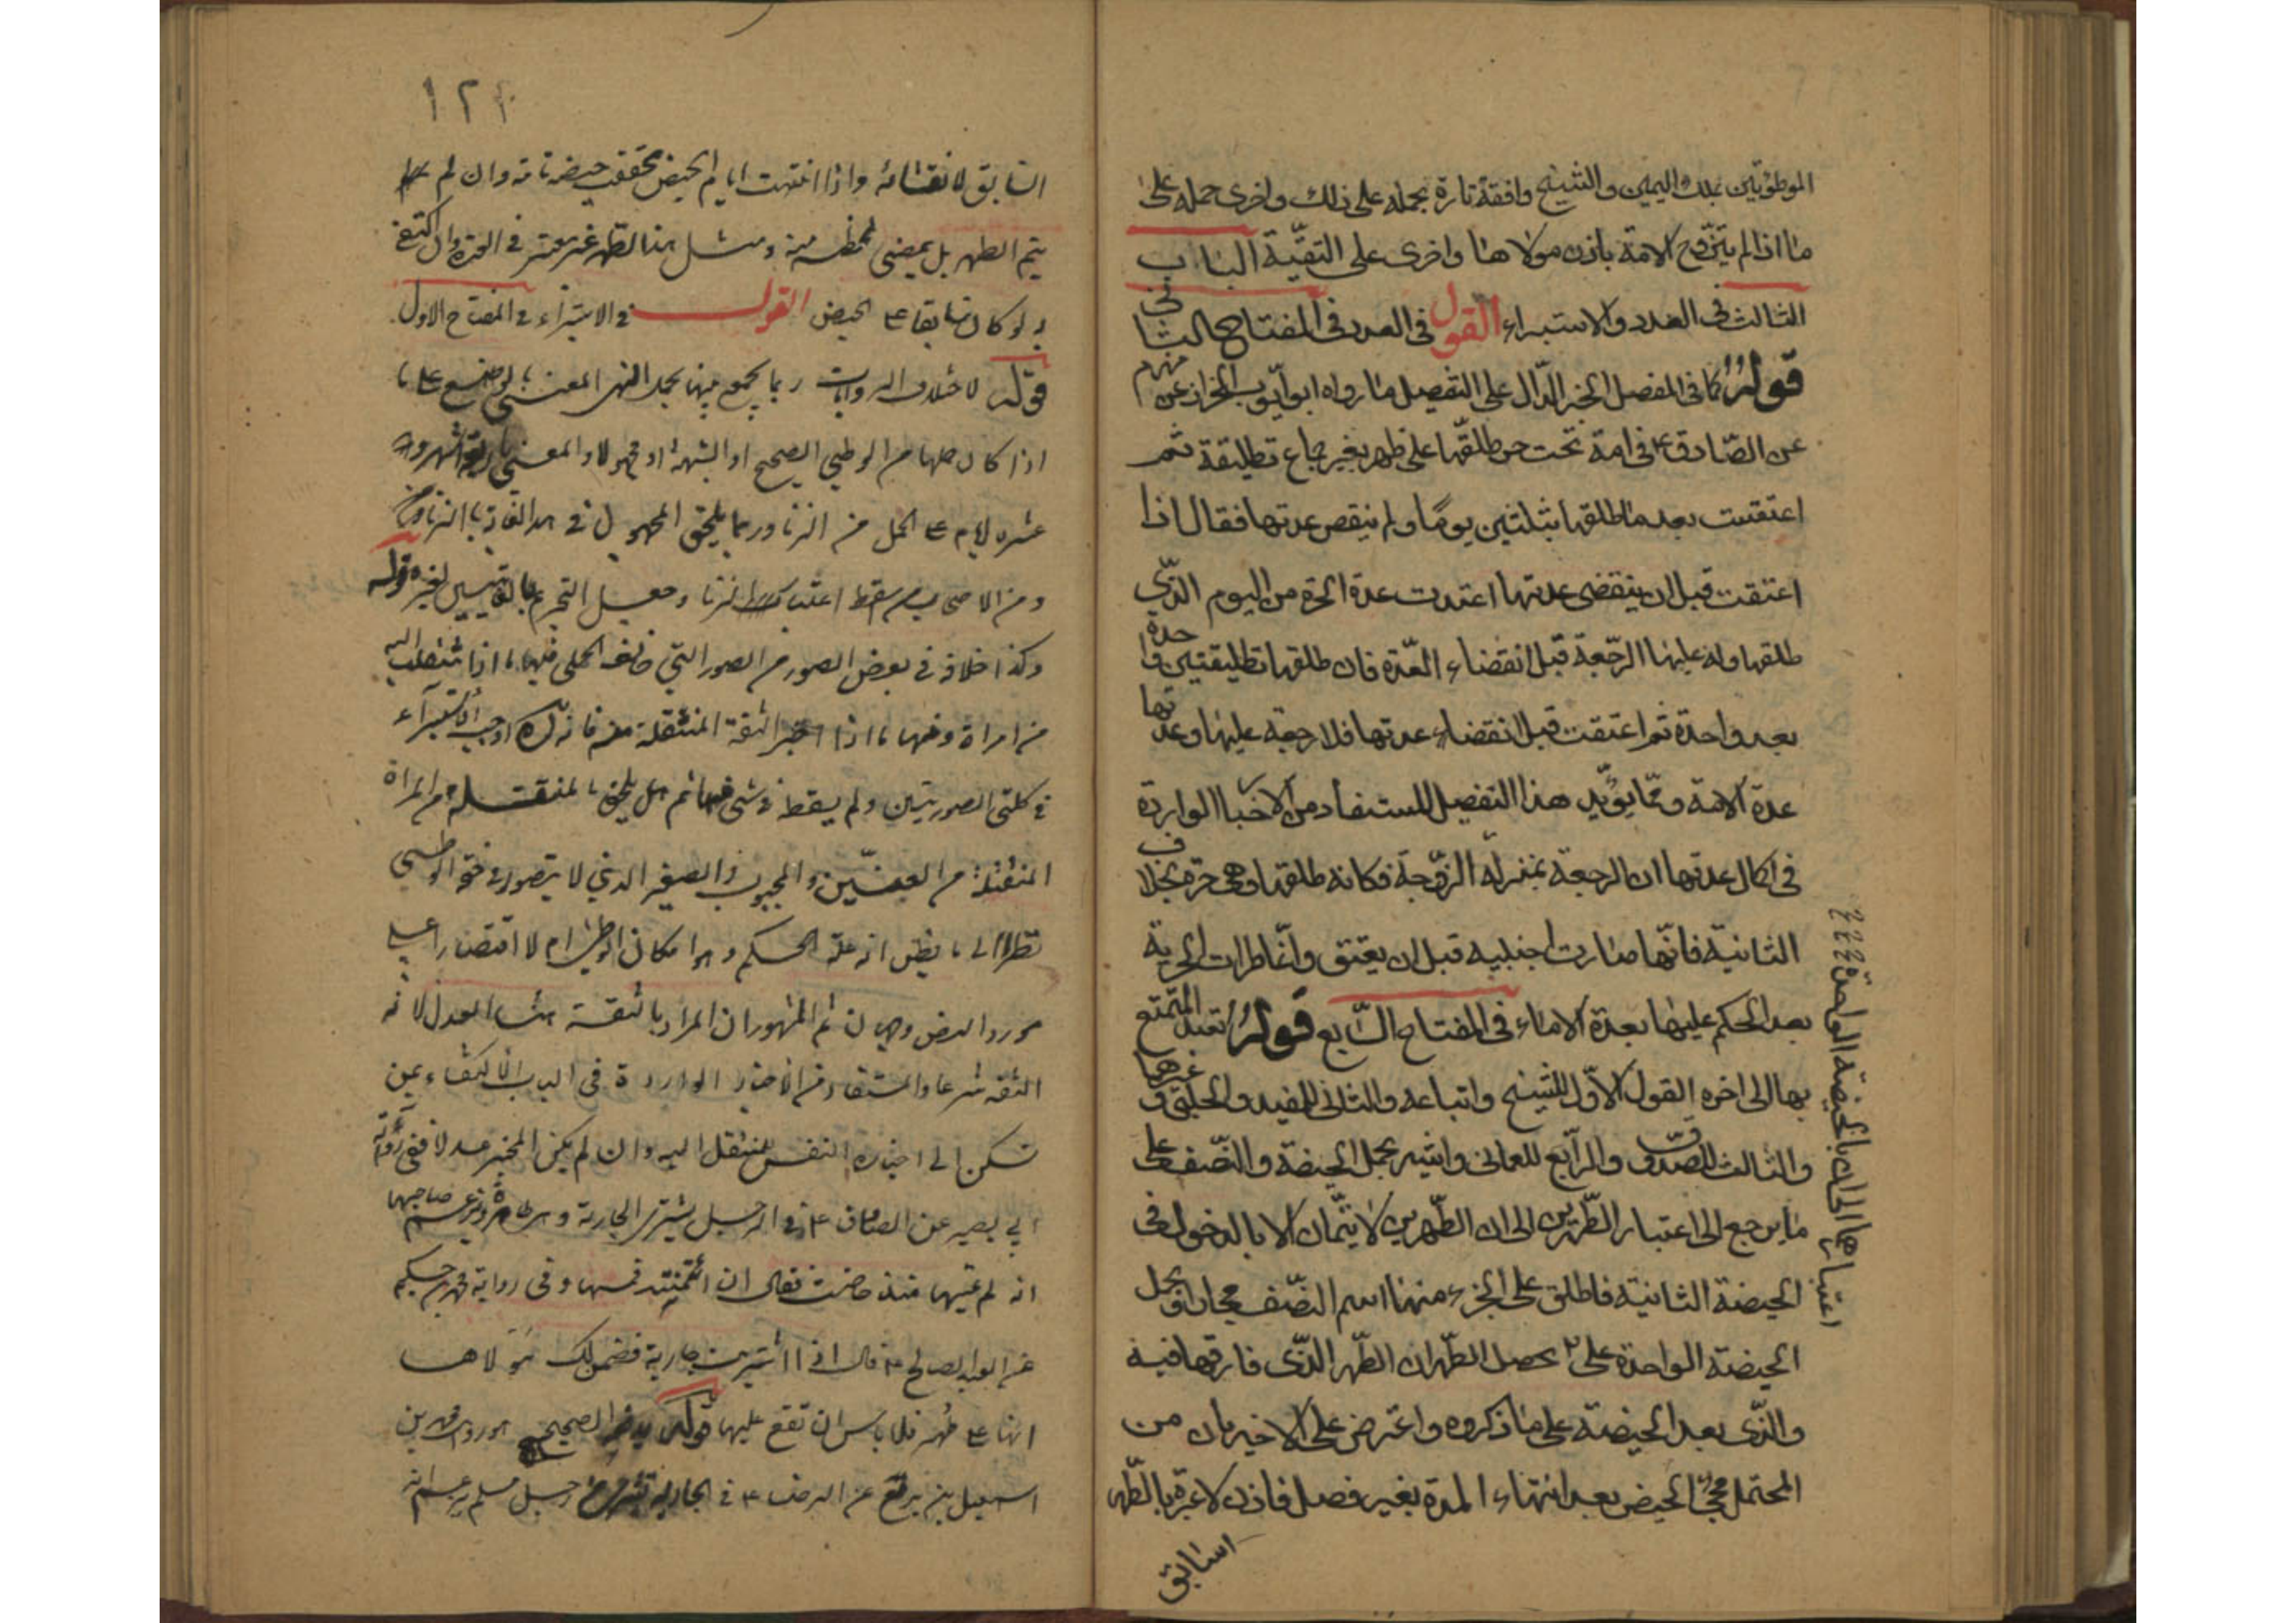 الموطوئتين بملك اليمين والشيخ وافقه تارة بحمله على ذلك واخرى حمله على
ما اذا لم يتزوج الامة باذن مولاها واخرى على التقية الباب
الثالث في العدد والاستبراء القول في العدد في المفتاح الثاني
قوله كما في المفصل الخبر الدال على التفصيل ما رواه ابو ايوب الخزاز عن مهزم
عن الصادق ع في امة تحت حر طلقها على طهر بغير جماع تطليقة ثم
اعتقت بعد ما طلقها بثلثين يوما ولم ينقض عدتها فقال اذا
اعتقت قبل ان ينقضي عدتها اعتدت عدة الحرة من اليوم الذي
طلقها وله عليها الرجعة قبل انقضاء العدة فان طلقها تطليقتين واحدة
بعد واحدة ثم اعتقت قبل انقضاء عدتها فلا رجعة عليها وعدتها
عدة الامة ومما يؤيد هذا التفصيل المستفاد من الاخبار الواردة
في اكمال عدتها ان الرجعة بمنزلة الزوجة فكانه طلقها وهي حرة بخلاف
الثانية فانها صارت اجنبية قبل ان يعتق وانما طرات الحرية
بعد الحكم عليها بعدة الاماء في المفتاح السابع قوله تعتد المتمتع
بها الى اخره القول الاول للشيخ واتباعه والثاني للمفيد والحلبي وغيرهما
والثالث للصدوق والرابع للعماني واشير بحمل الحيضة والنصف على
ما يرجع الى اعتبار الطهرين الى ان الطهرين لا يتمان الا بالدخول في
الحيضة الثانية فاطلق على الجزء منها اسم النصف مجازا وبحمل
الحيضة الواحدة على ٢ يحصل الطهران الطهر الذي فارقها فيه
والذي بعد الحيضة على ما ذكروه واعترض على الاخير بان من
المحتمل مجئ الحيض بعد انتهاء المدة بغير فصل فاذن لا عبرة بالطهر
السابق
اعتبارهما الى ان بالحيضة الواحدة
١٢٢
السابق لانقضائه واذا انتهت ايام الحيض تحققت حيضة تامة وان لم
يتم الطهر بل بمضي لحظة منه ومثل هذا الطهر غير معتبر في الحرة وان اكتفى
به لو كان سابقا على الحيض القول في الاستبراء في المفتاح الاول
قوله لاختلاف الروايات ربما يجمع بينها بحمل النهي المعنى بالوضع على ما
اذا كان حملها من الوطي الصحيح او الشبهة او مجهولا والمعنى باربعة اشهر و
عشرة ايام على الحمل من الزنا وربما يلحق المجهول في هذا الغاية بالزنا
ومن الاصحاب من اسقط اعتبار الزنا وجعل التحريم قوله
وكذا خلاف في بعض الصور من الصور التي خالف الحلي فيها ما اذا انتقلت اليه
من امراة ومنها ما اذا اخبر الثقة المنتقلة منه فانه اوجب الاستبراء
في كلتي الصورتين ولم يسقط في شئ منها ثم هل يلحق بالمنتقلة من المراة
المنتقلة من العنين والمجبوب والصغير الذي لا يتصور في حقه الوطي
نظرا الى ما يظن انه علة الحكم وهو امكان الوطي ام لا اقتصارا على
مورد النص وجهان ثم المشهور ان المراد بالثقة هنا العدل لانه
الثقة شرعا والمستفاد من الاخبار الواردة في الباب الاكتفاء بمن
تسكن الى اخباره النفس المنتقل اليه وان لم يكن المخبر عدلا ففي
ابي بصير عن الصادق ع في الرجل يشتري الجارية وهي طاهرة ويزعم صاحبها
انه لم يمسها منذ حاضت فقال ان ائتمنته فمسها وفي رواية محمد بن حكيم
عن العبد الصالح ع قال اذا اشتريت جارية فضمن لك مولاها
انها على طهر فلا باس ان تقع عليها قوله الصحيح
اسمعيل بن بزيع عن الرضا ع في الجارية تشترى من رجل مسلم يزعم انه